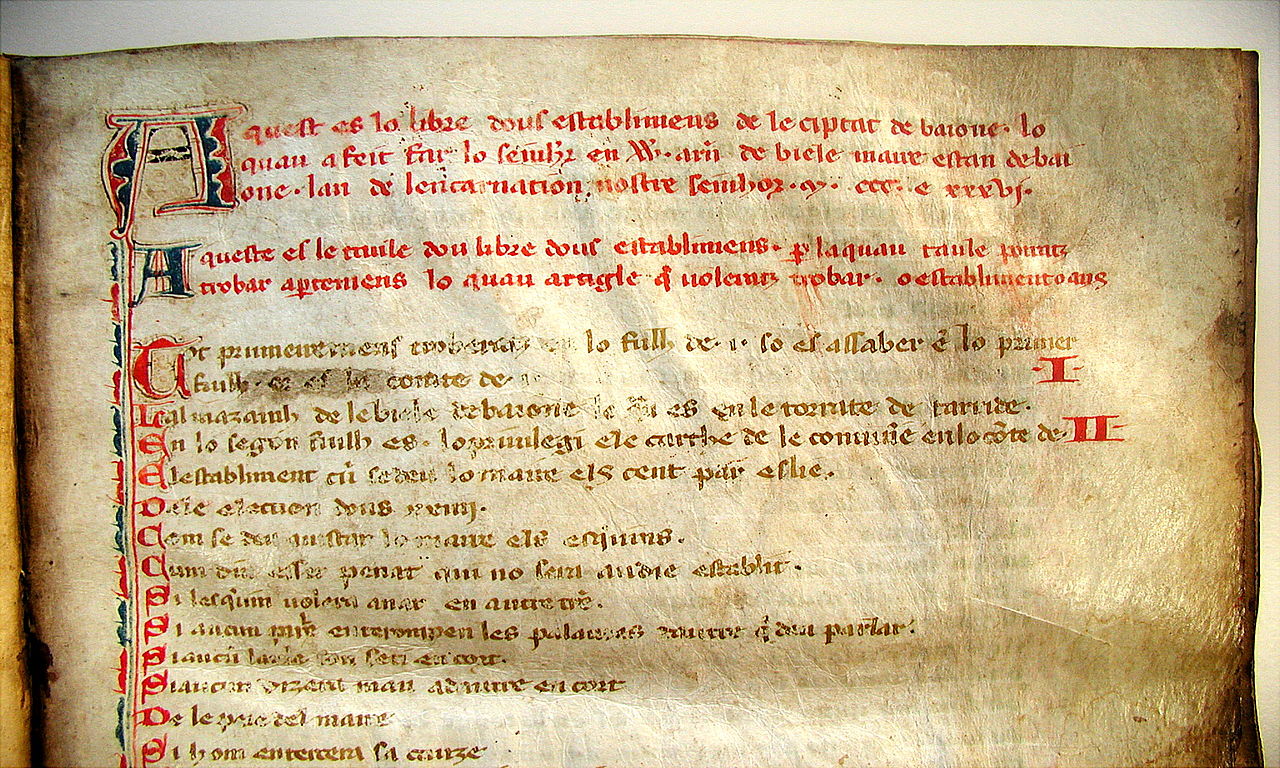 Aquest es lo libre dous establimens de le ciptat de baione. lo
quau a feit far lo senhor en W. arn de biele maire estan de bai
one. lan de lencarnation nostre senhor. m. ccc. e xxxvi.
Aqueste es le taule dou libre dous establimens. p laquau taule poiratz
trobar apertemens lo quau artigle q volentz trobar. o establiment o ans
Tot primeiremens en lo fulh de. i. so es assaber e lo primer
fulh. es lo comte de. i. I
Lalmazamh de le biele de baione le es en le tornate de.
En lo segon fuilh es. lo priuilegi e le carthe de le comune en lo cote de II
Lestabliment cu se deu lo maire els cent pars eslie.
De le election dous xxiiii.
Com se deu lo maire els esquins.
Cum deu esser penat qui no sera audie establit.
Si lesquin volera anar en autre tre.
Si aucun par enterompen les palauras q deu parlar.
Si aucu en cort.
Si aucun man en cort
De le prec del maire
Si hom entercera sa cauze